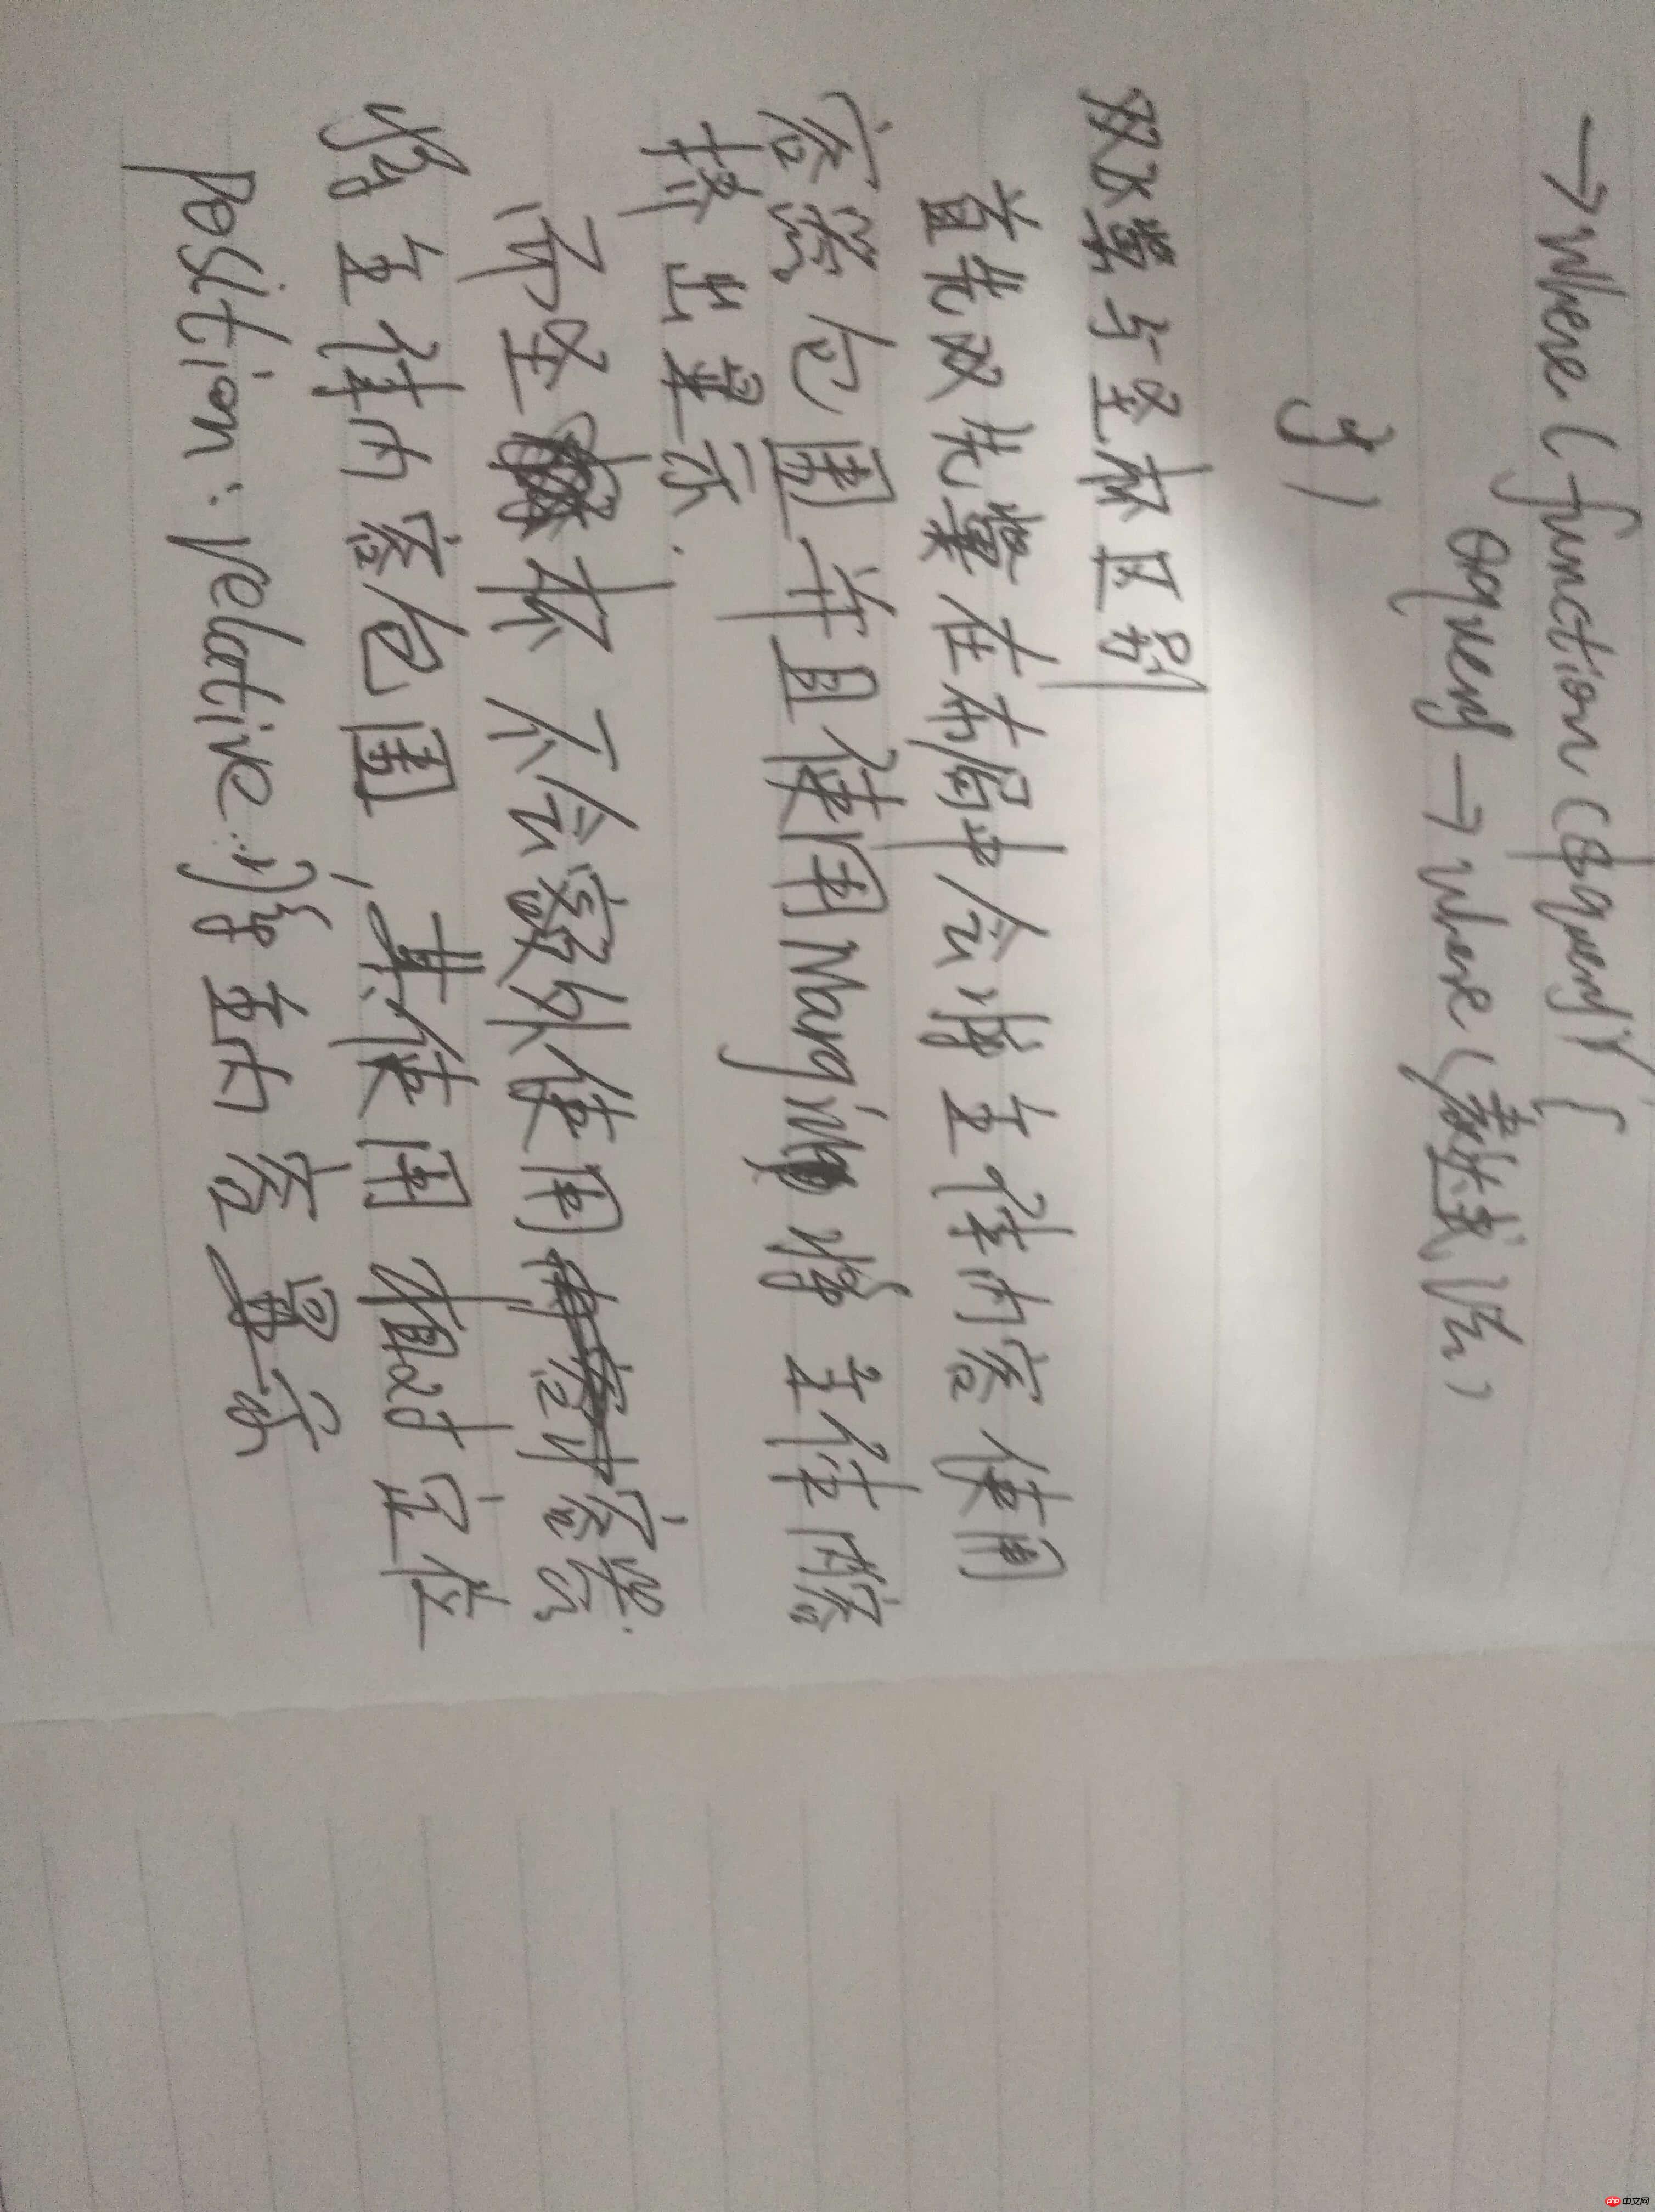 →where(function($query){
$query→where(表达式/值)
})
双飞翼与圣杯区别
首先双飞翼在布局中会将主体内容使用
容器包围并且使用Margin将主体内容
挤出显示.
而圣杯不会额外使用容器
将主体内容包围,其使用相对定位
position:relative;将主内容显示
php中文网